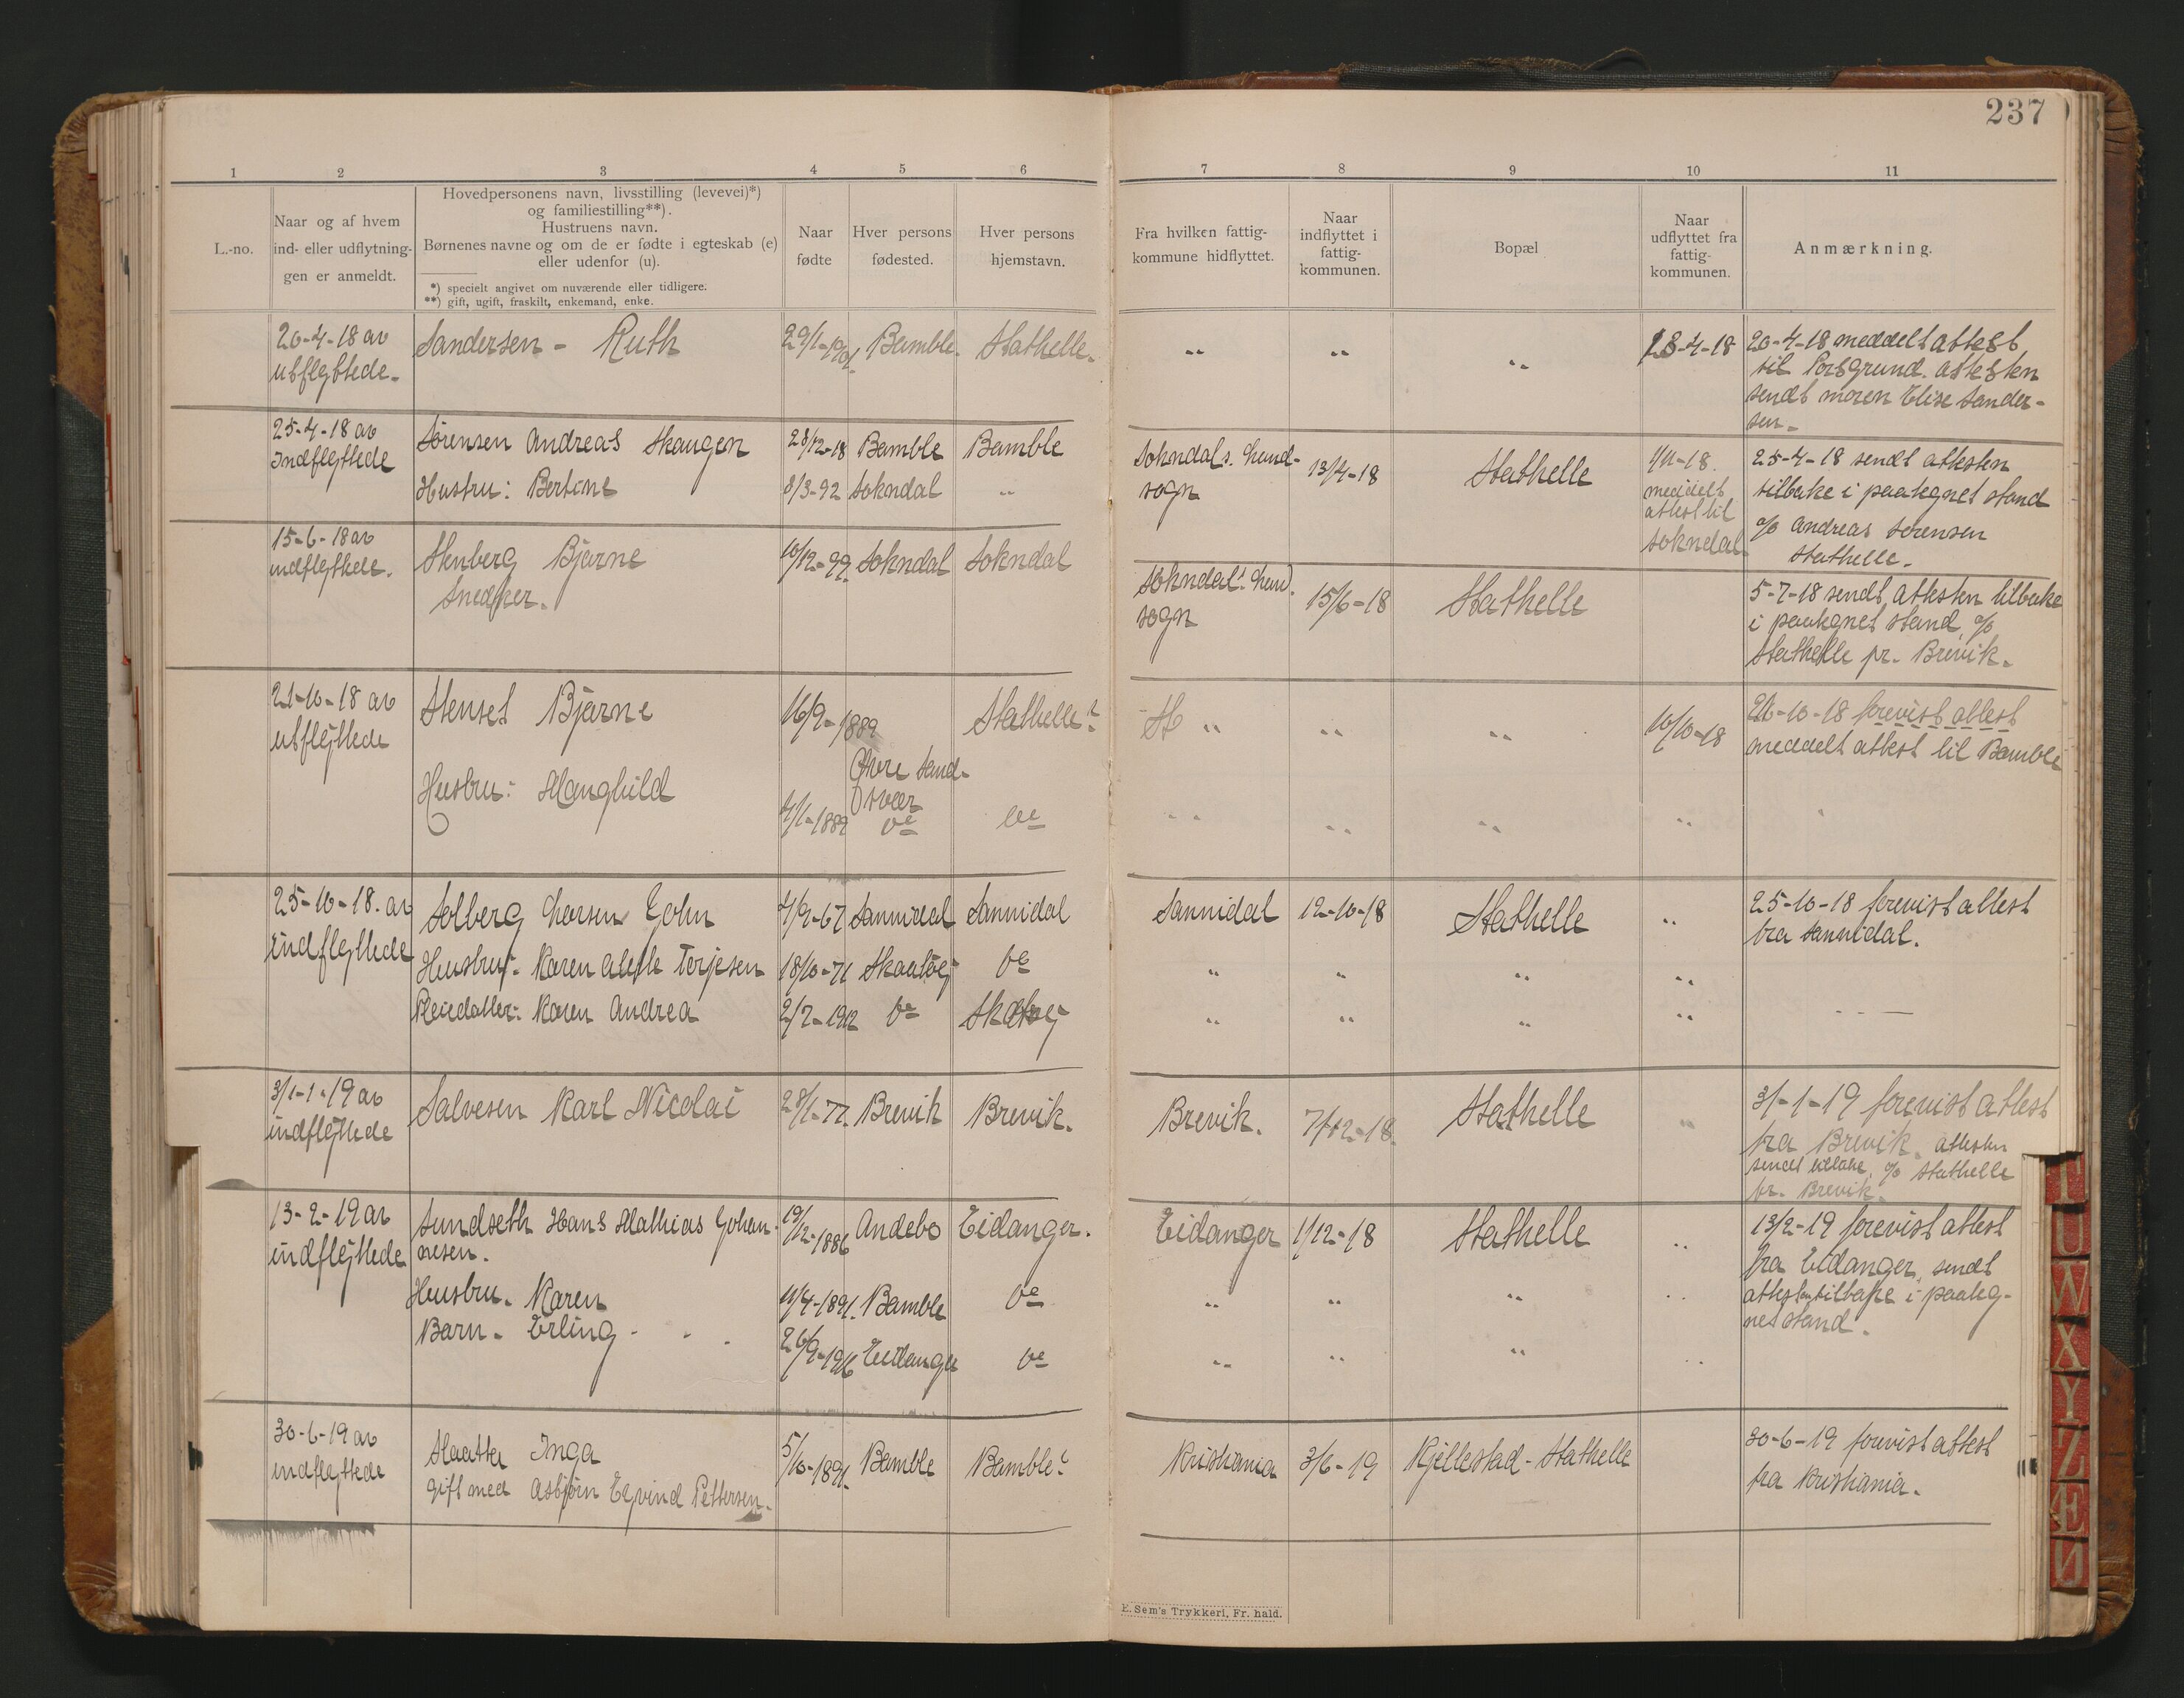 237
1 2 3 4 5 6 7 8 9 10 11
L.-no.
Naar og af hvem
ind- eller udflytning-
gen er anmeldt.
Hovedpersonens navn, livsstilling (levevei)*)
og familiestilling**).
Hustruens navn.
Børnenes navne og om de er fødte i egteskab (e)
eller udenfor (u).
*) specielt angivet om nuværende eller tidligere.
**) gift, ugift, fraskilt, enkemand, enke.
Naar
fødte
Hver persons
fødested.
Hver persons
hjemstavn.
Fra hvilken fattig-
kommune hidflyttet.
Naar
indflyttet i
fattig-
kommunen.
Bopæl
Naar
udflyttet fra
fattig-
kommunen.
Anmærkning.
20-4-18 av
utflyttede
Sandersen - Ruth
Bamble. Stathelle.
" " "
18-4-18
20-4-18 meddelt attest
til Porsgrund. attesten
sendt moren Elise Sander-
sen.
25-4-18 av
Indflyttede
Sørensen Andreas Skaugen
28/12-18 Bamble Bamble
Hustru: Bertine
8/3-92 Sokndal "
Sokndal s. Land-
sogn
13/4-18
Stathelle
1/11-18.
meddelt
attest til
Sokndal
25-4-18 sendt attesten
tilbake i paategnet stand
% Andreas Sørensen
Stathelle.
15-6-18 av
indflyttede.
Stenberg Bjarne
Snedker.
10/12-99. Sokndal Sokndal
Sokndals Land.
sogn
15/6-18
Stathelle
5-7-18 sendt attesten tilbake
i paategnet stand %
Stathelle pr. Brevik.
21-10-18 av
utflyttede
Stenset Bjarne
16/9-1889
Øvre Sand-
svær
Stathelle?
St " " "
10/10-18
21-10-18 forevist attest
meddelt attest til Bamble
Hustru: Manghild
4/1-1889 do do
25-10-18. av
indflyttede
Solberg Larsen John
4/9-67 Sannidal Sannidal
Sannidal 12-10-18 Stathelle "
25-10-18 forevist attest
fra Sannidal.
Hustru: Karen Terjesen
18/10-71 Skaatøy do
Pleiedatter: Karen Andrea
2/7-1912 do Skatøy
31-1-19 av
indflyttede
Salvesen Karl Nicolai
28/1-77. Brevik Brevik.
Brevik. 7/12-18. Stathelle "
31-1-19 forevist attest
fra Brevik. attesten
sendt tilbake, % Stathelle
pr. Brevik.
13-2-19 av
indflyttede
Sundseth Hans Mathias Johan-
nesen.
19/12-1886 Andebo Eidanger.
Eidanger 1/12-18 Stathelle "
13/2-19 forevist attest
fra Eidanger, sendt
attesten tilbake i paateg-
net stand.
Hustru. Karen
11/4-1891. Bamble do
Barn. Erling
26/9-1916 Eidanger do
30-6-19 av
indflyttede
Inga
gift med Asbjørn Eyvind Pettersen.
5/10-1891. Bamble Bamble?
Kristiania 3/6-19 Kjellestad - Stathelle
30-6-19 forevist attest
fra Kristiania.
E. Sem's Trykkeri, Fr. hald.
U
W
X
Y
Z
Æ